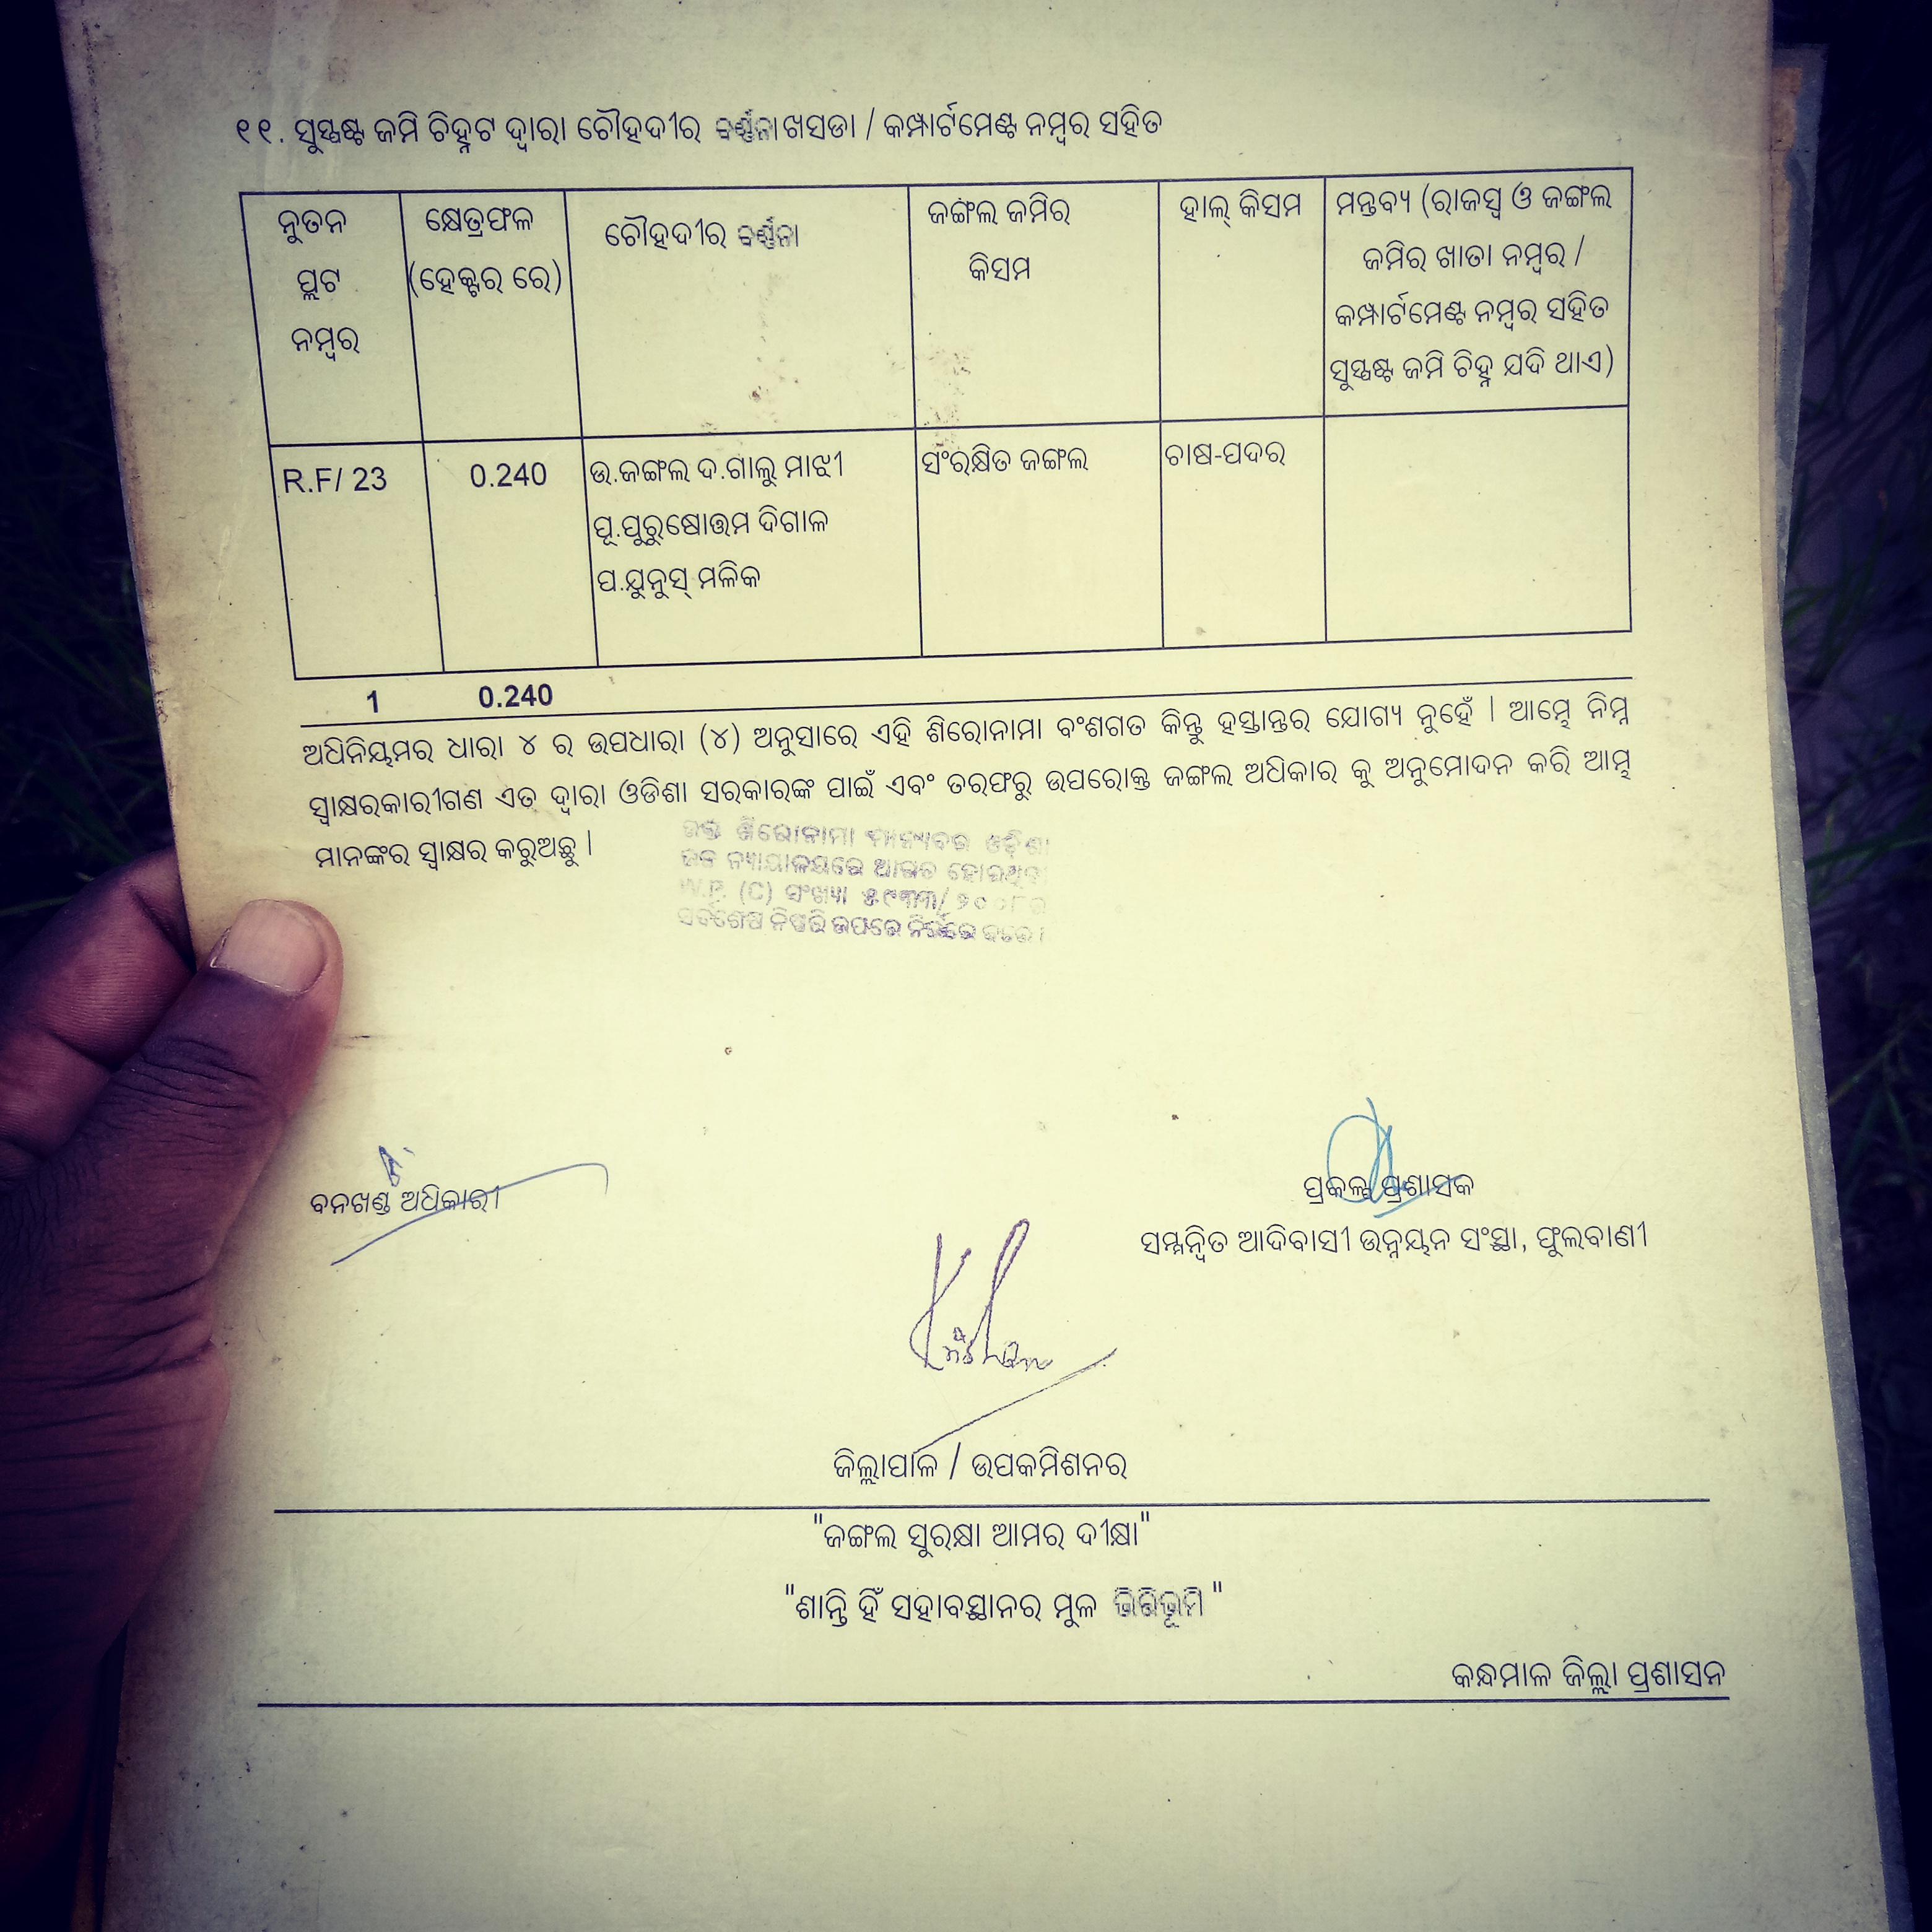 ୧୧. ସୁସ୍ପଷ୍ଟ ଜମି ଚିହ୍ନଟ ଦ୍ୱାରା ଚୌହଦୀର ବର୍ଣ୍ଣନା ଖସଡା / କମ୍ପାର୍ଟମେଣ୍ଟ ନମ୍ବର ସହିତ
ନୁତନ ପ୍ଲଟ ନମ୍ବର
କ୍ଷେତ୍ରଫଳ (ହେକ୍ଟର ରେ)
ଚୌହଦୀର ବର୍ଣ୍ଣନା
ଜଙ୍ଗଲ ଜମିର କିସମ
ହାଲ୍ କିସମ
ମନ୍ତବ୍ୟ (ରାଜସ୍ୱ ଓ ଜଙ୍ଗଲ
ଜମିର ଖାତା ନମ୍ବର /
କମ୍ପାର୍ଟମେଣ୍ଟ ନମ୍ବର ସହିତ
ସୁସ୍ପଷ୍ଟ ଜମି ଚିହ୍ନ ଯଦି ଥାଏ)
R.F/ 23
0.240
ଉ.ଜଙ୍ଗଲ ଦ.ଗାଲୁ ମାଝୀ
ପୂ.ପୁରୁଷୋତ୍ତମ ଦିଗାଳ
ପ.ଯୁନୁସ୍ ମଳିକ
ସଂରକ୍ଷିତ ଜଙ୍ଗଲ
ଚାଷ-ପଦର
1 0.240
ଅଧିନିୟମର ଧାରା ୪ ର ଉପଧାରା (୪) ଅନୁସାରେ ଏହି ଶିରୋନାମା ବଂଶଗତ କିନ୍ତୁ ହସ୍ତାନ୍ତର ଯୋଗ୍ୟ ନୁହେଁ । ଆମ୍ଭେ ନିମ୍ନ
ସ୍ୱାକ୍ଷରକାରୀଗଣ ଏତ ଦ୍ୱାରା ଓଡିଶା ସରକାରଙ୍କ ପାଇଁ ଏବଂ ତରଫରୁ ଉପରୋକ୍ତ ଜଙ୍ଗଲ ଅଧିକାର କୁ ଅନୁମୋଦନ କରି ଆମ୍ଭ
ମାନଙ୍କର ସ୍ୱାକ୍ଷର କରୁଅଛୁ ।
ଶିରୋନାମା ମାନ୍ୟବର ଓଡ଼ିଶା
ନ୍ୟାୟାଳୟରେ ଆଗତ ହୋଇଥିବା
W.P. (C) ସଂଖ୍ୟା
ଉପରେ ନିର୍ଭର କରେ ।
ବନଖଣ୍ଡ ଅଧିକାରୀ
ପ୍ରକଳ୍ପ ପ୍ରଶାସକ
ସମ୍ମନ୍ୱିତ ଆଦିବାସୀ ଉନ୍ନୟନ ସଂସ୍ଥା, ଫୁଲବାଣୀ
ଜିଲ୍ଲାପାଳ / ଉପକମିଶନର
"ଜଙ୍ଗଲ ସୁରକ୍ଷା ଆମର ଦୀକ୍ଷା"
"ଶାନ୍ତି ହିଁ ସହାବସ୍ଥାନର ମୁଳ ଭିତ୍ତିଭୂମି"
କନ୍ଧମାଳ ଜିଲ୍ଲା ପ୍ରଶାସନ